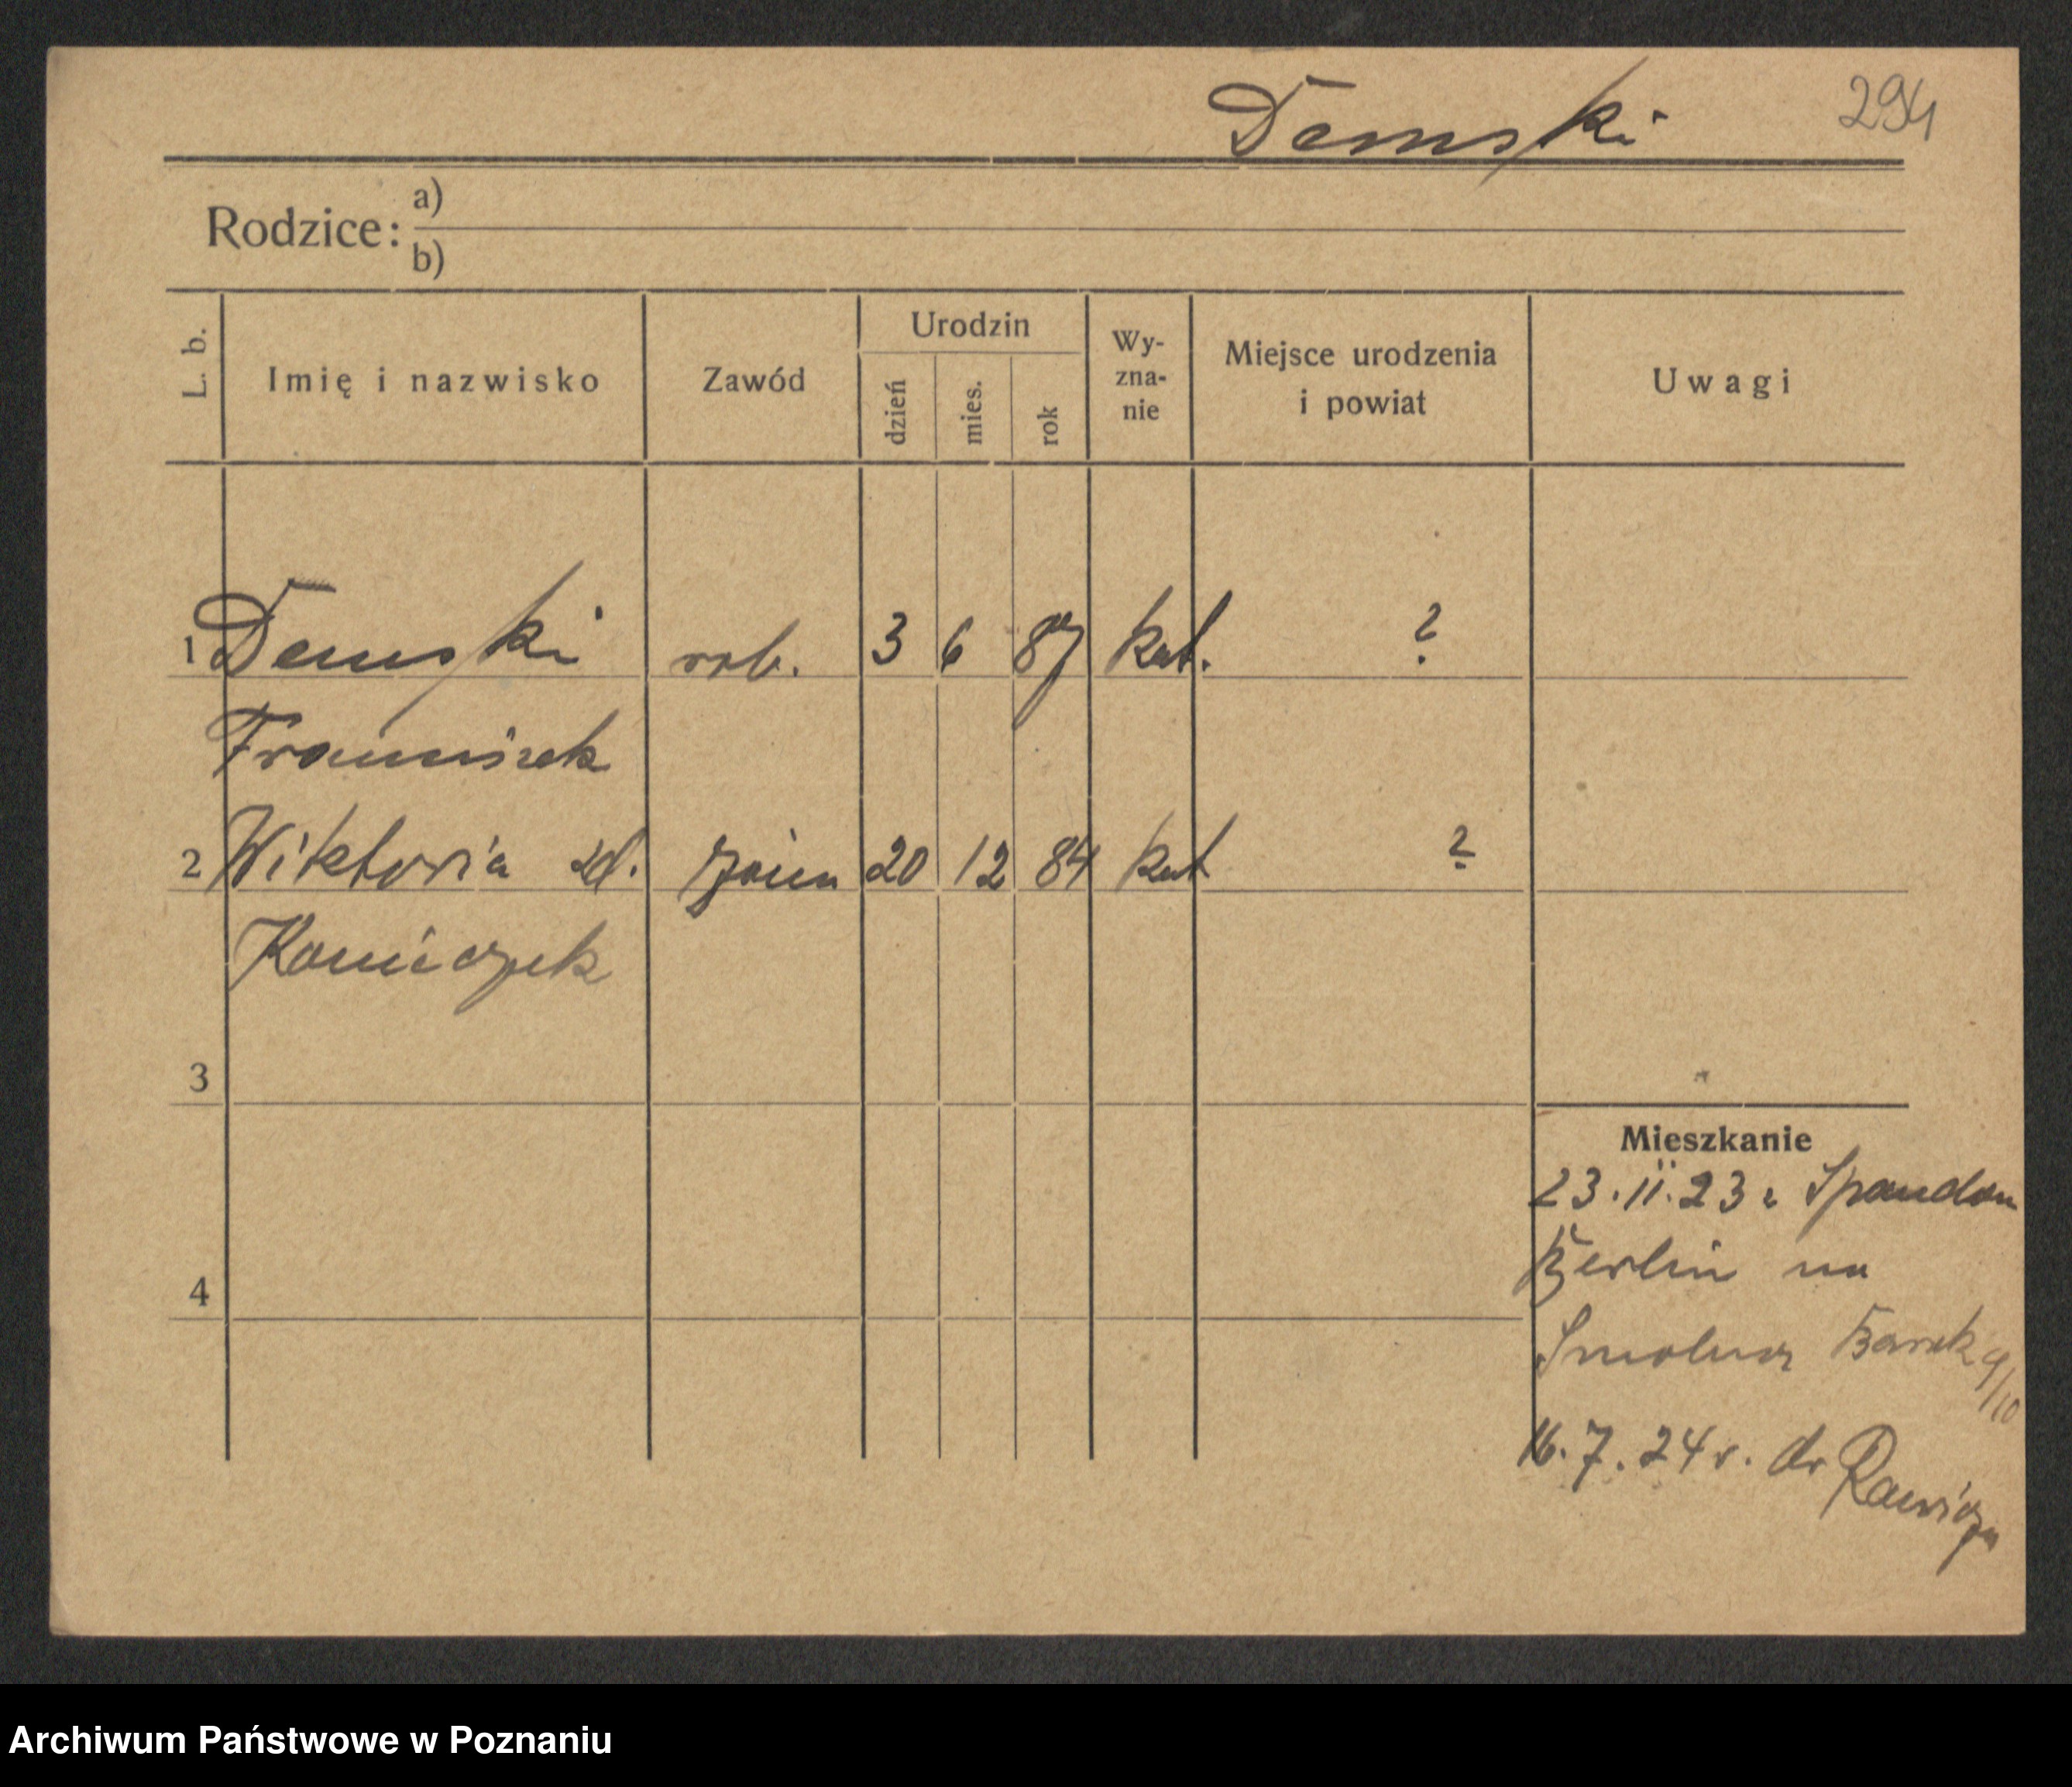 Demski 294
Rodzice: a)
b)
L. b. Imię i nazwisko Zawód Urodzin dzień mies. rok Wy-zna-nie Miejsce urodzenia i powiat Uwagi
1 Demski rob. 3 6 87 kat. ?
Franciszek
2 Wiktoria zd. 20 12 84 kat ?
Konieczek
3
4
Mieszkanie
23.II.23 z Spandau
Berlin na
Barak 9/10
16.7.24 r. do Rawicza
Archiwum Państwowe w Poznaniu